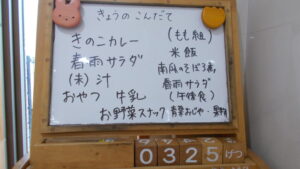 きょうの こんだて
きのこカレー
春雨サラダ
(未)汁
おやつ 牛乳
お野菜スナック
(もも組)
米飯
南瓜のそぼろ煮
春雨サラダ
(午後食)
青菜おじや・果物
0325げつ